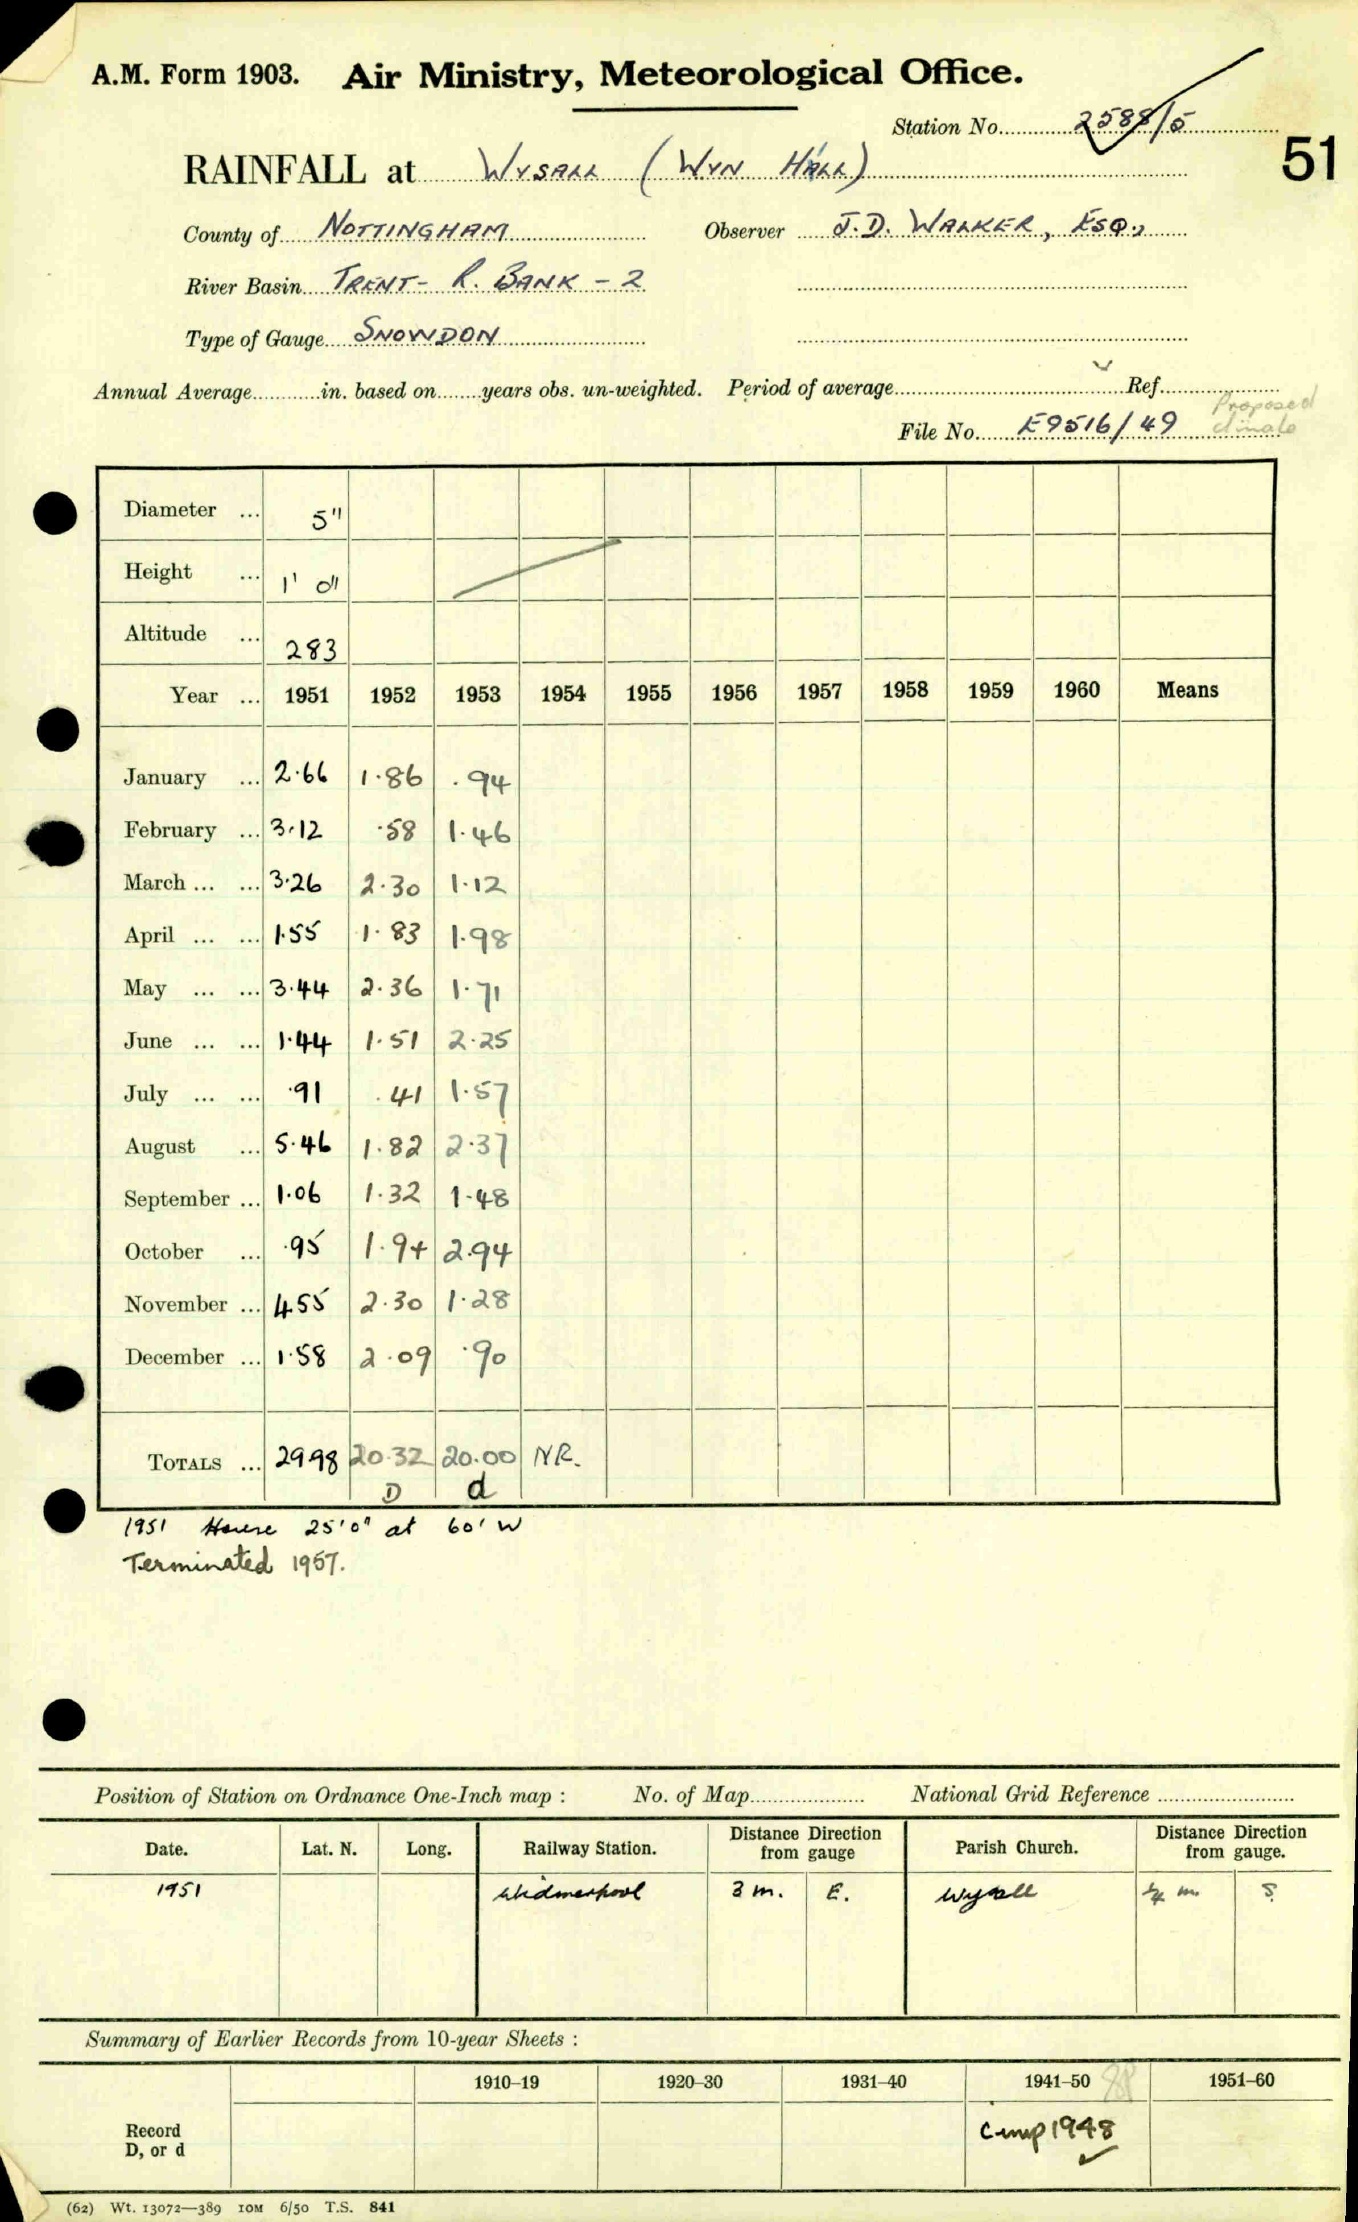 A.M. Form 1903. Air Ministry, Meteorological Office.
Station No. 2588/5
51
RAINFALL at Wysall (Wyn Hall)
County of Nottingham Observer J.D. Walker, Esq.,
River Basin Trent - R. Bank - 2
Type of Gauge Snowdon
Annual Average in. based on years obs. un-weighted. Period of average Ref.
Proposed
File No. E9516/49 climate
Diameter ... 5"
Height ... 1' 0"
Altitude ... 283
Year ... 1951 1952 1953 1954 1955 1956 1957 1958 1959 1960 Means
January ... 2.66 1.86 .94
February ... 3.12 .58 1.46
March ... ... 3.26 2.30 1.12
April ... ... 1.55 1.83 1.98
May ... ... 3.44 2.36 1.71
June ... ... 1.44 1.51 2.25
July ... ... .91 .41 1.57
August ... 5.46 1.82 2.37
September ... 1.06 1.32 1.48
October ... .95 1.94 2.94
November ... 4.55 2.30 1.28
December ... 1.58 2.09 .90
Totals ... 29.98 20.32 20.00 NR.
D d
1951 House 25'0" at 60' W
Terminated 1957.
Position of Station on Ordnance One-Inch map : No. of Map National Grid Reference
Date. Lat. N. Long. Railway Station. Distance Direction from gauge Parish Church. Distance Direction from gauge.
1951 Widmerpool 3 m. E. Wysall ¼ m. S.
Summary of Earlier Records from 10-year Sheets :
1910–19 1920–30 1931–40 1941–50 1951–60
Record
D, or d
1948
(62) Wt. 13072—389 10M 6/50 T.S. 841